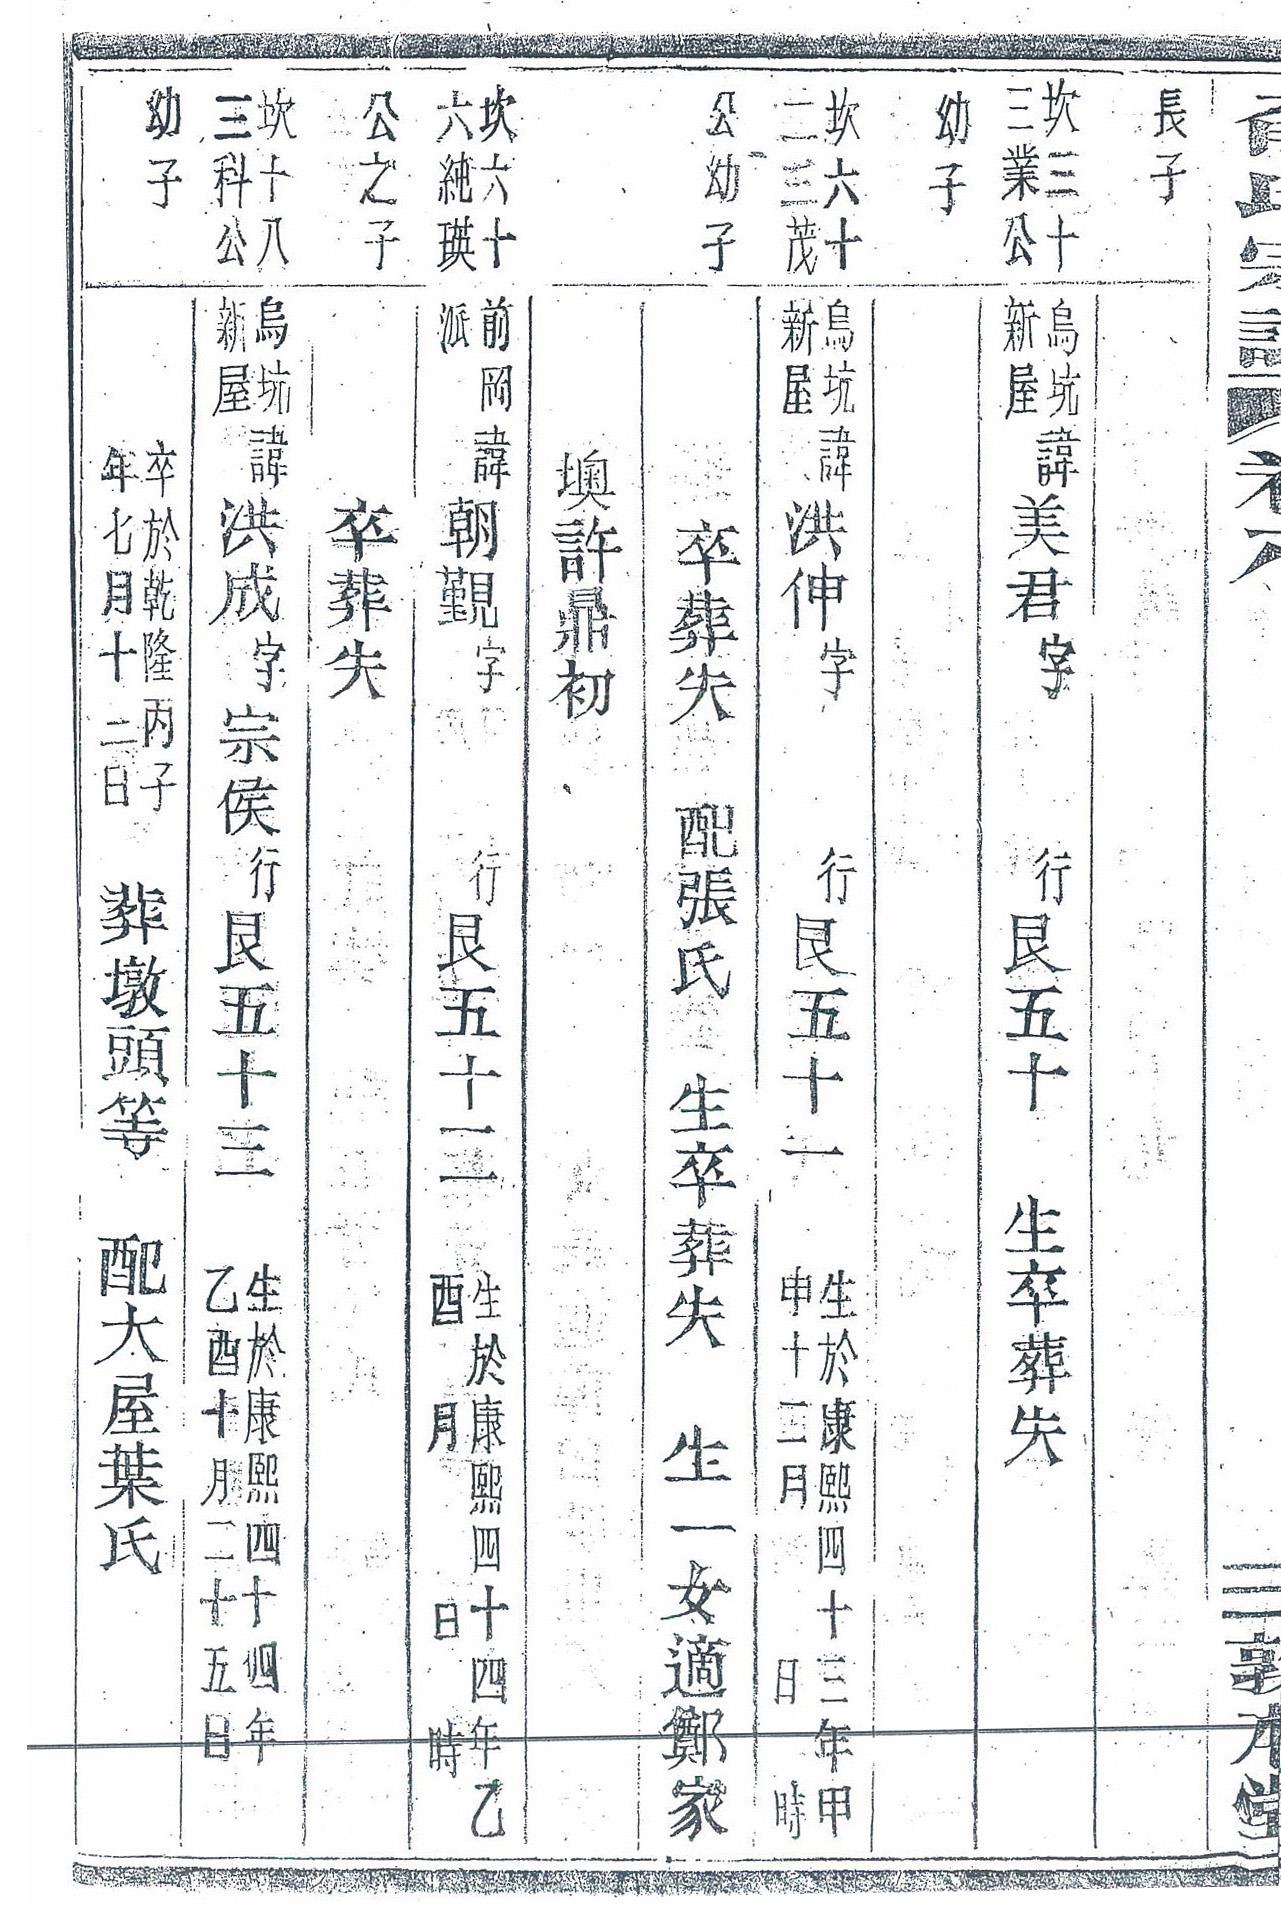 氏宗譜 卷 三 敦本堂
長子
坎三十三業公 烏坑新屋 諱美君字 行艮五十 生卒葬失
幼子
坎六十二三茂 烏坑新屋 諱洪伸字 行艮五十一 生於康熙四十三年甲申十二月 日 時
公幼子 卒葬失 配張氏 生卒葬失 生一女適鄭家
墺許鼎初
坎六十六純瑛 前岡派 諱朝覲字 行艮五十二 生於康熙四十四年乙酉 月 日 時
公之子 卒葬失
坎十八三科公 烏坑新屋 諱洪成字宗侯行艮五十三 生於康熙四十四年乙酉十月二十五日
幼子 卒於乾隆丙子年七月十二日 葬墩頭等 配大屋葉氏